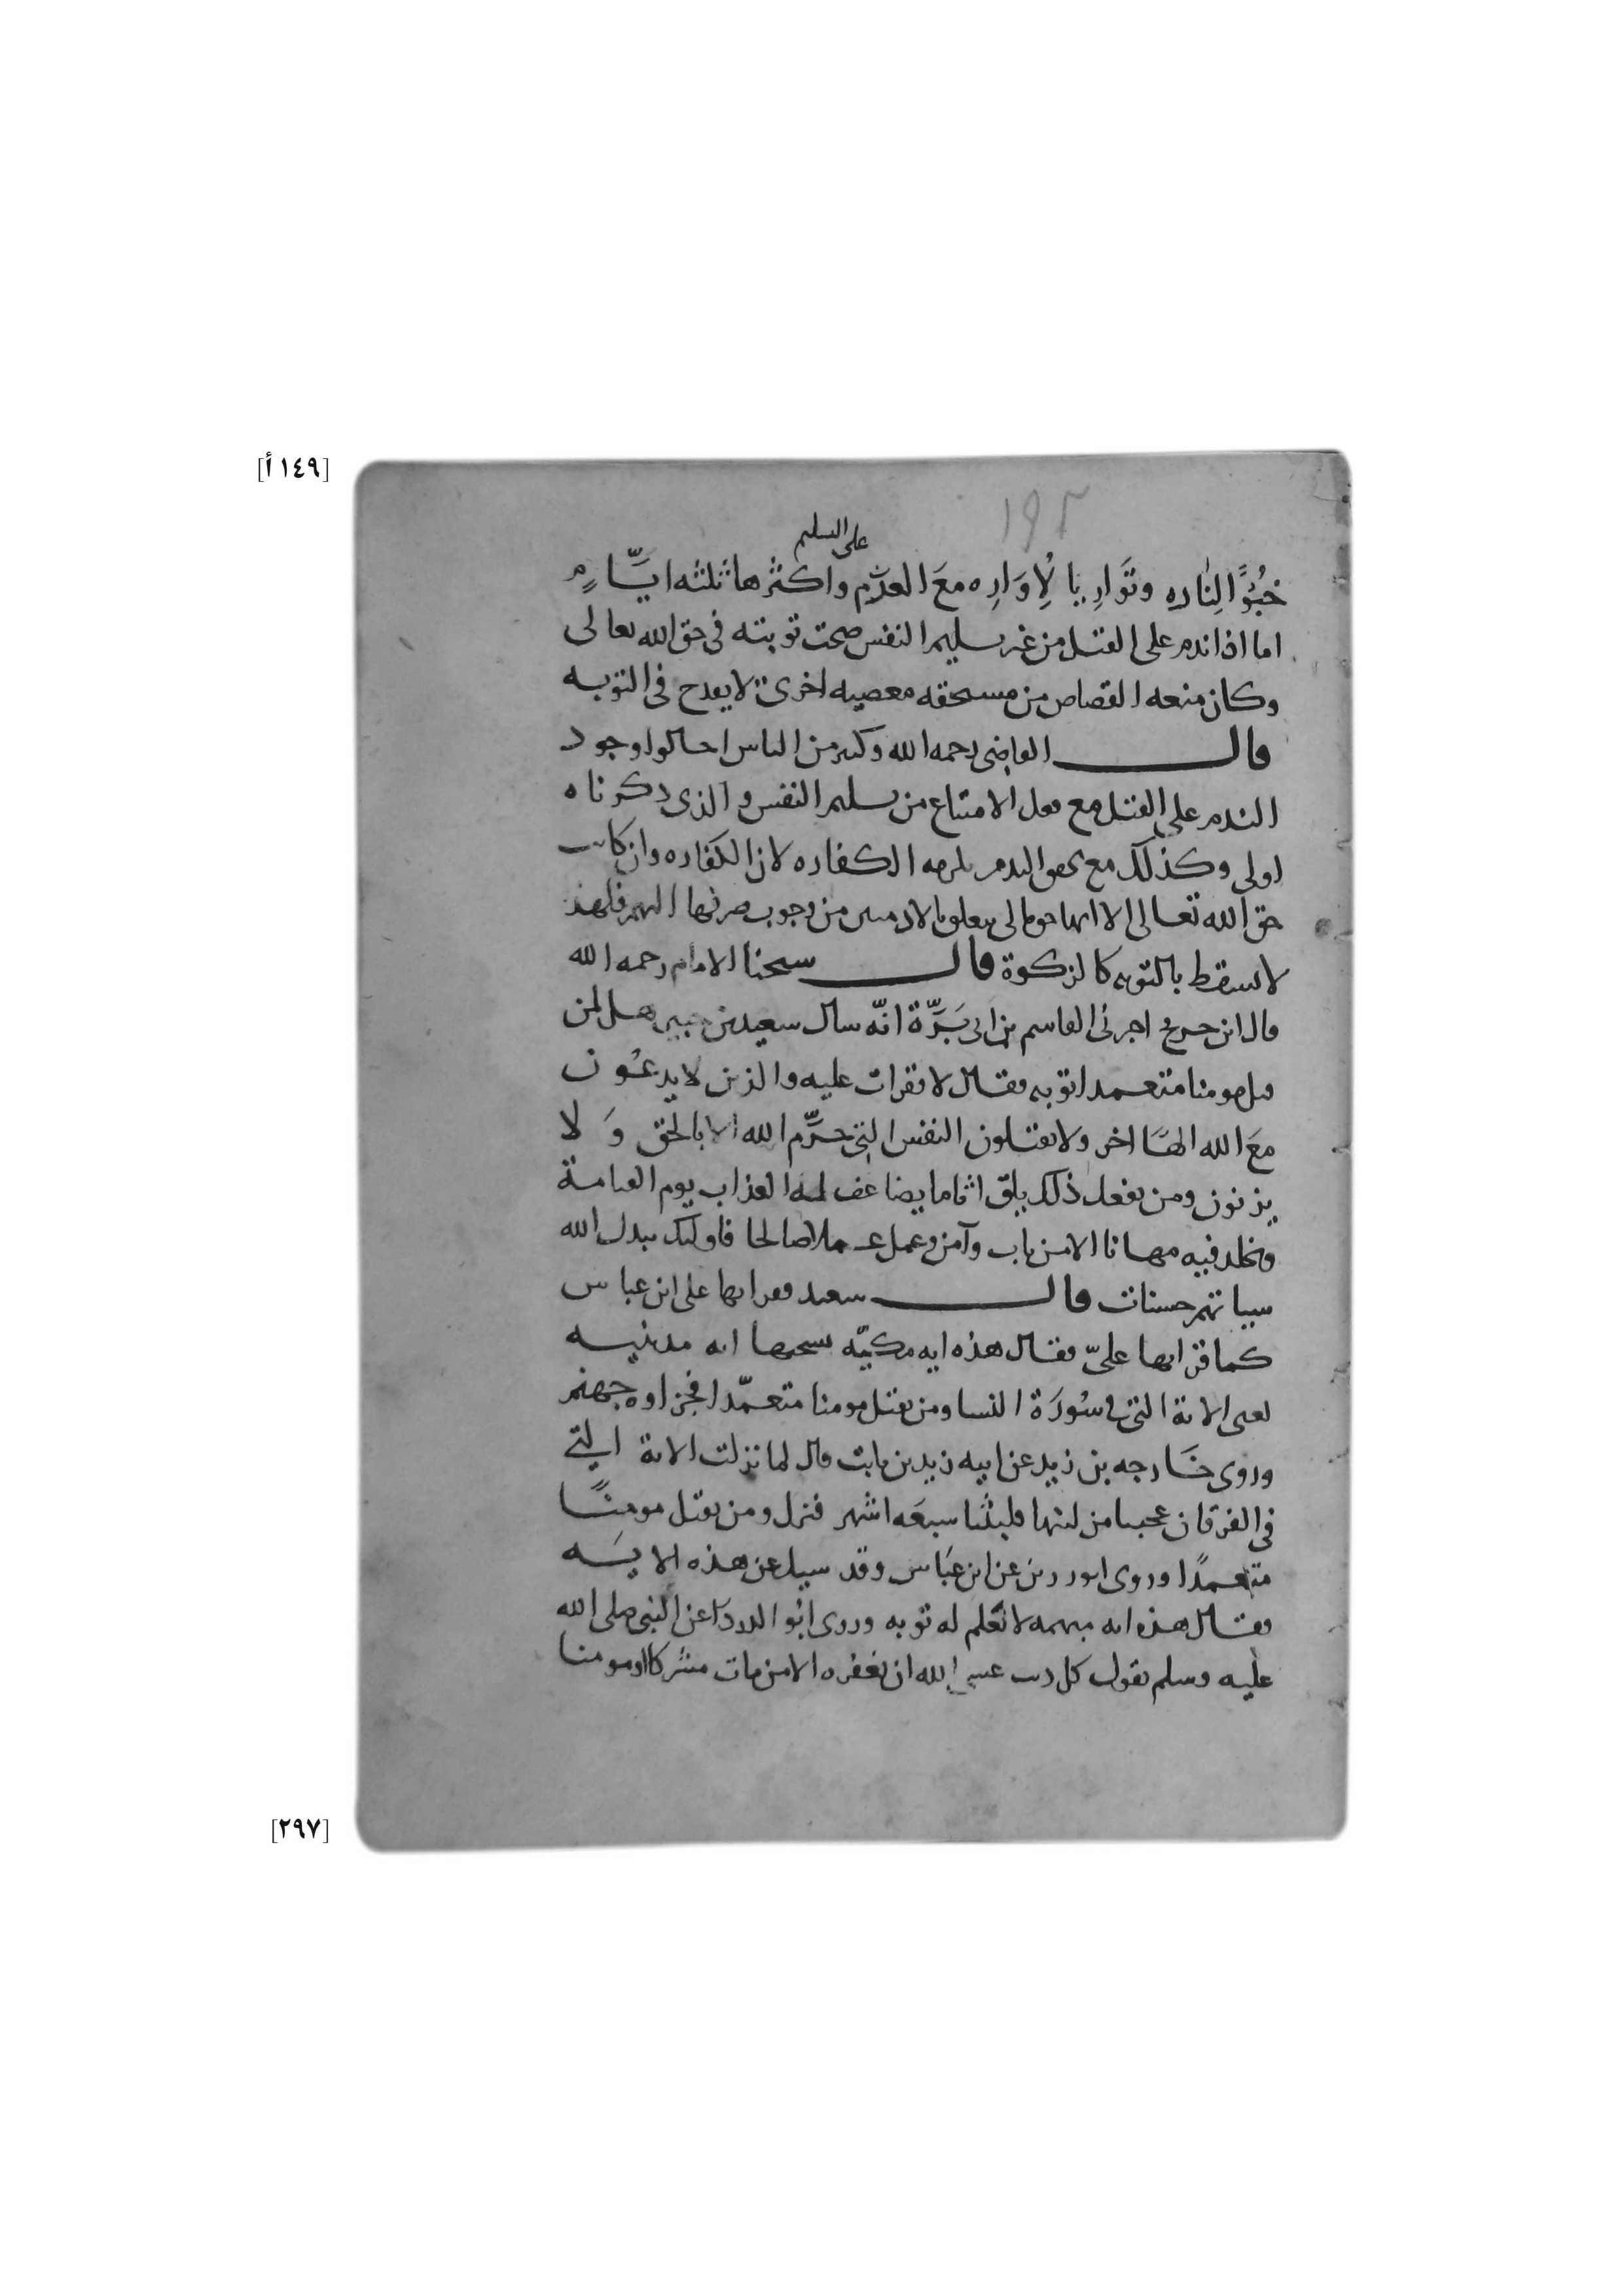 [١٤٩ أ]
١٩٢
على السليم
خبوًّا لناره وتواريا لأواره مع العزم واكثرها ثلثه ايام
اما اذا ندم على القتل من غير تسليم النفس صحت توبته في حق الله تعالى
وكان منعه القصاص من مستحقه معصيه اخرى لا يقدح في التوبه
قال القاضي رحمه الله وكثير من الناس احالوا وجود
الندم على القتل مع فعل الامتناع من تسليم النفس والذي ذكرناه
اولى وكذلك مع تحقق الندم يلزمه الكفاره لان الكفاره وان كانت
حق الله تعالى الا انها حق مالي يتعلق بالادميين من وجوب صرفها اليهم فلهذا
لا يسقط بالتوبه كالزكوة قال شيخنا الامام رحمه الله
قال ابن جريج اخبرني القاسم بن ابي بَزَّة انّه سال سعيد بن جبير هل لمن
قتل مومنا متعمدا توبه فقال لا فقرات عليه والذين لا يدعون
مع الله الهًا اخر ولا يقتلون النفس التي حرَّم الله الا بالحق وَلا
يزنون ومن يفعل ذلك يلق اثاما يضاعف له العذاب يوم القيامة
ويخلد فيه مهانا الا من تاب وآمن وعمل عملا صالحا فاوليك يبدل الله
سياتهم حسنات قال سعيد فقراتها على ابن عباس
كما قراتها عليّ فقال هذه ايه مكيّه نسختها ايه مدنيه
يعني الاية التي في سُورَة النسا ومن يقتل مومنا متعمّدا فجزاوه جهنم
وروى خارجه بن زيد عن ابيه زيد بن ثابت قال لما نزلت الاية التي
في الفرقان عجبنا من لينها فلبثنا سبعَه اشهر فنزل ومن يقتل مومنًا
متعمدًا وروى ابو رزين عن ابن عبَاس وقد سيل عن هذه الايَه
فقال هذه ايه مبهمه لا تعلم له توبه وروى ابُو الدردَا عن النبي صلى الله
عليه وسلم يقول كل ذنب عسى الله ان يغفره الا من مات مشركا او مومنا
[٢٩٧]